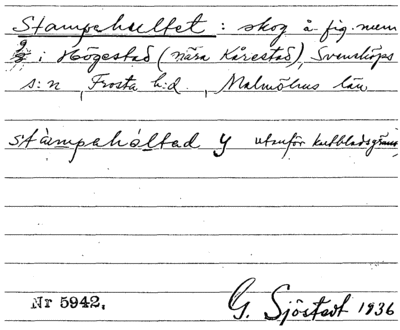 Stampehultet : skog å fig. num
2 i Högestad (nära Kårestad), Svensköps
s:n, Frosta h:d., Malmöhus län
stàmpehóltad y utanför kartbladsgräns
Nr 5942. G. Sjöstedt 1936